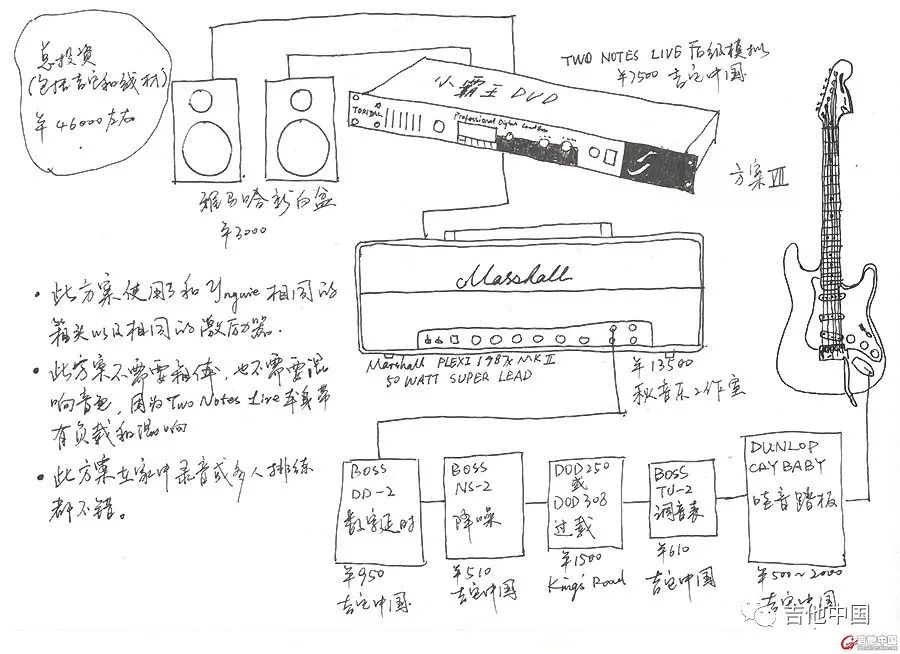 总投资
(包括吉它和线材)
¥46000左右
TWO NOTES LIVE 后级模拟
¥7500 吉它中国
小霸王 DVD
TORPEDO
Professional Digital Loadbox
方案Ⅶ
雅马哈新白盆
¥3000
Masshall
Marshall PLEXI 1987X MKⅡ
50 WATT SUPER LEAD
¥13500
秋音乐工作室
• 此方案使用了和Yngwie相同的
箱头以及相同的激励器.
• 此方案不需要箱体,也不需要混
响音色,因为Two Notes Live 本身带
有负载和混响
• 此方案在家中录音或多人排练
都不错。
BOSS
DD-2
数字延时
¥950
吉它中国
BOSS
NS-2
降噪
¥510
吉它中国
DOD250
或
DOD308
过载
¥1500
King's Road
BOSS
TU-2
调音表
¥610
吉它中国
DUNLOP
CAYBABY
哇音踏板
¥500~2000
吉它中国
吉他中国
吉他中国